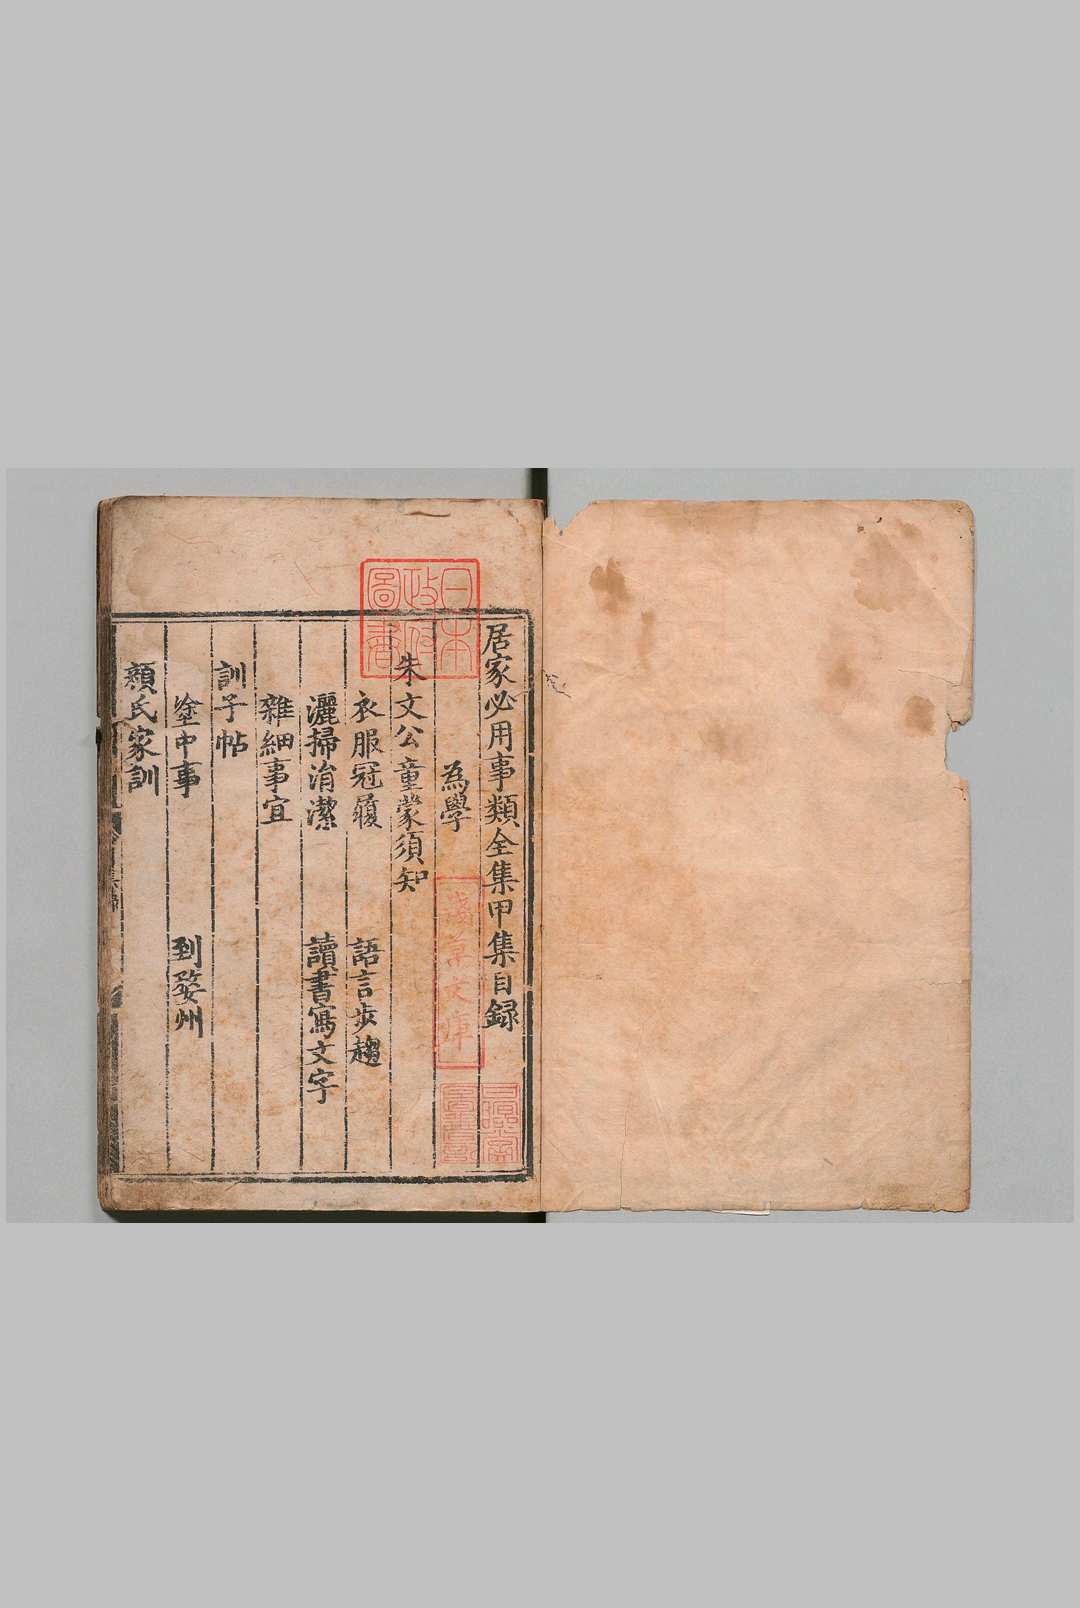 居家必用事類全集甲集目録
為學
朱文公童蒙須知
衣服冠履　語言歩趨
灑掃涓潔　讀書寫文字
雜細事宜
訓子帖
塗中事　到婺州
顔氏家訓
日本
政府
圖書
淺草文庫